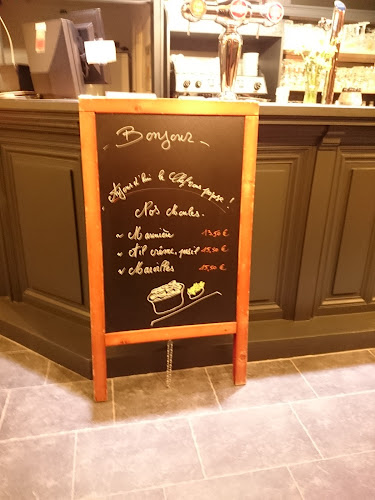 - Bonjour -
- Aujourd'hui le Chef vous propose !
Nos Moules.
Marinière 13,50 €
Ail crème, persil 15,50 €
Maroilles 15,50 €